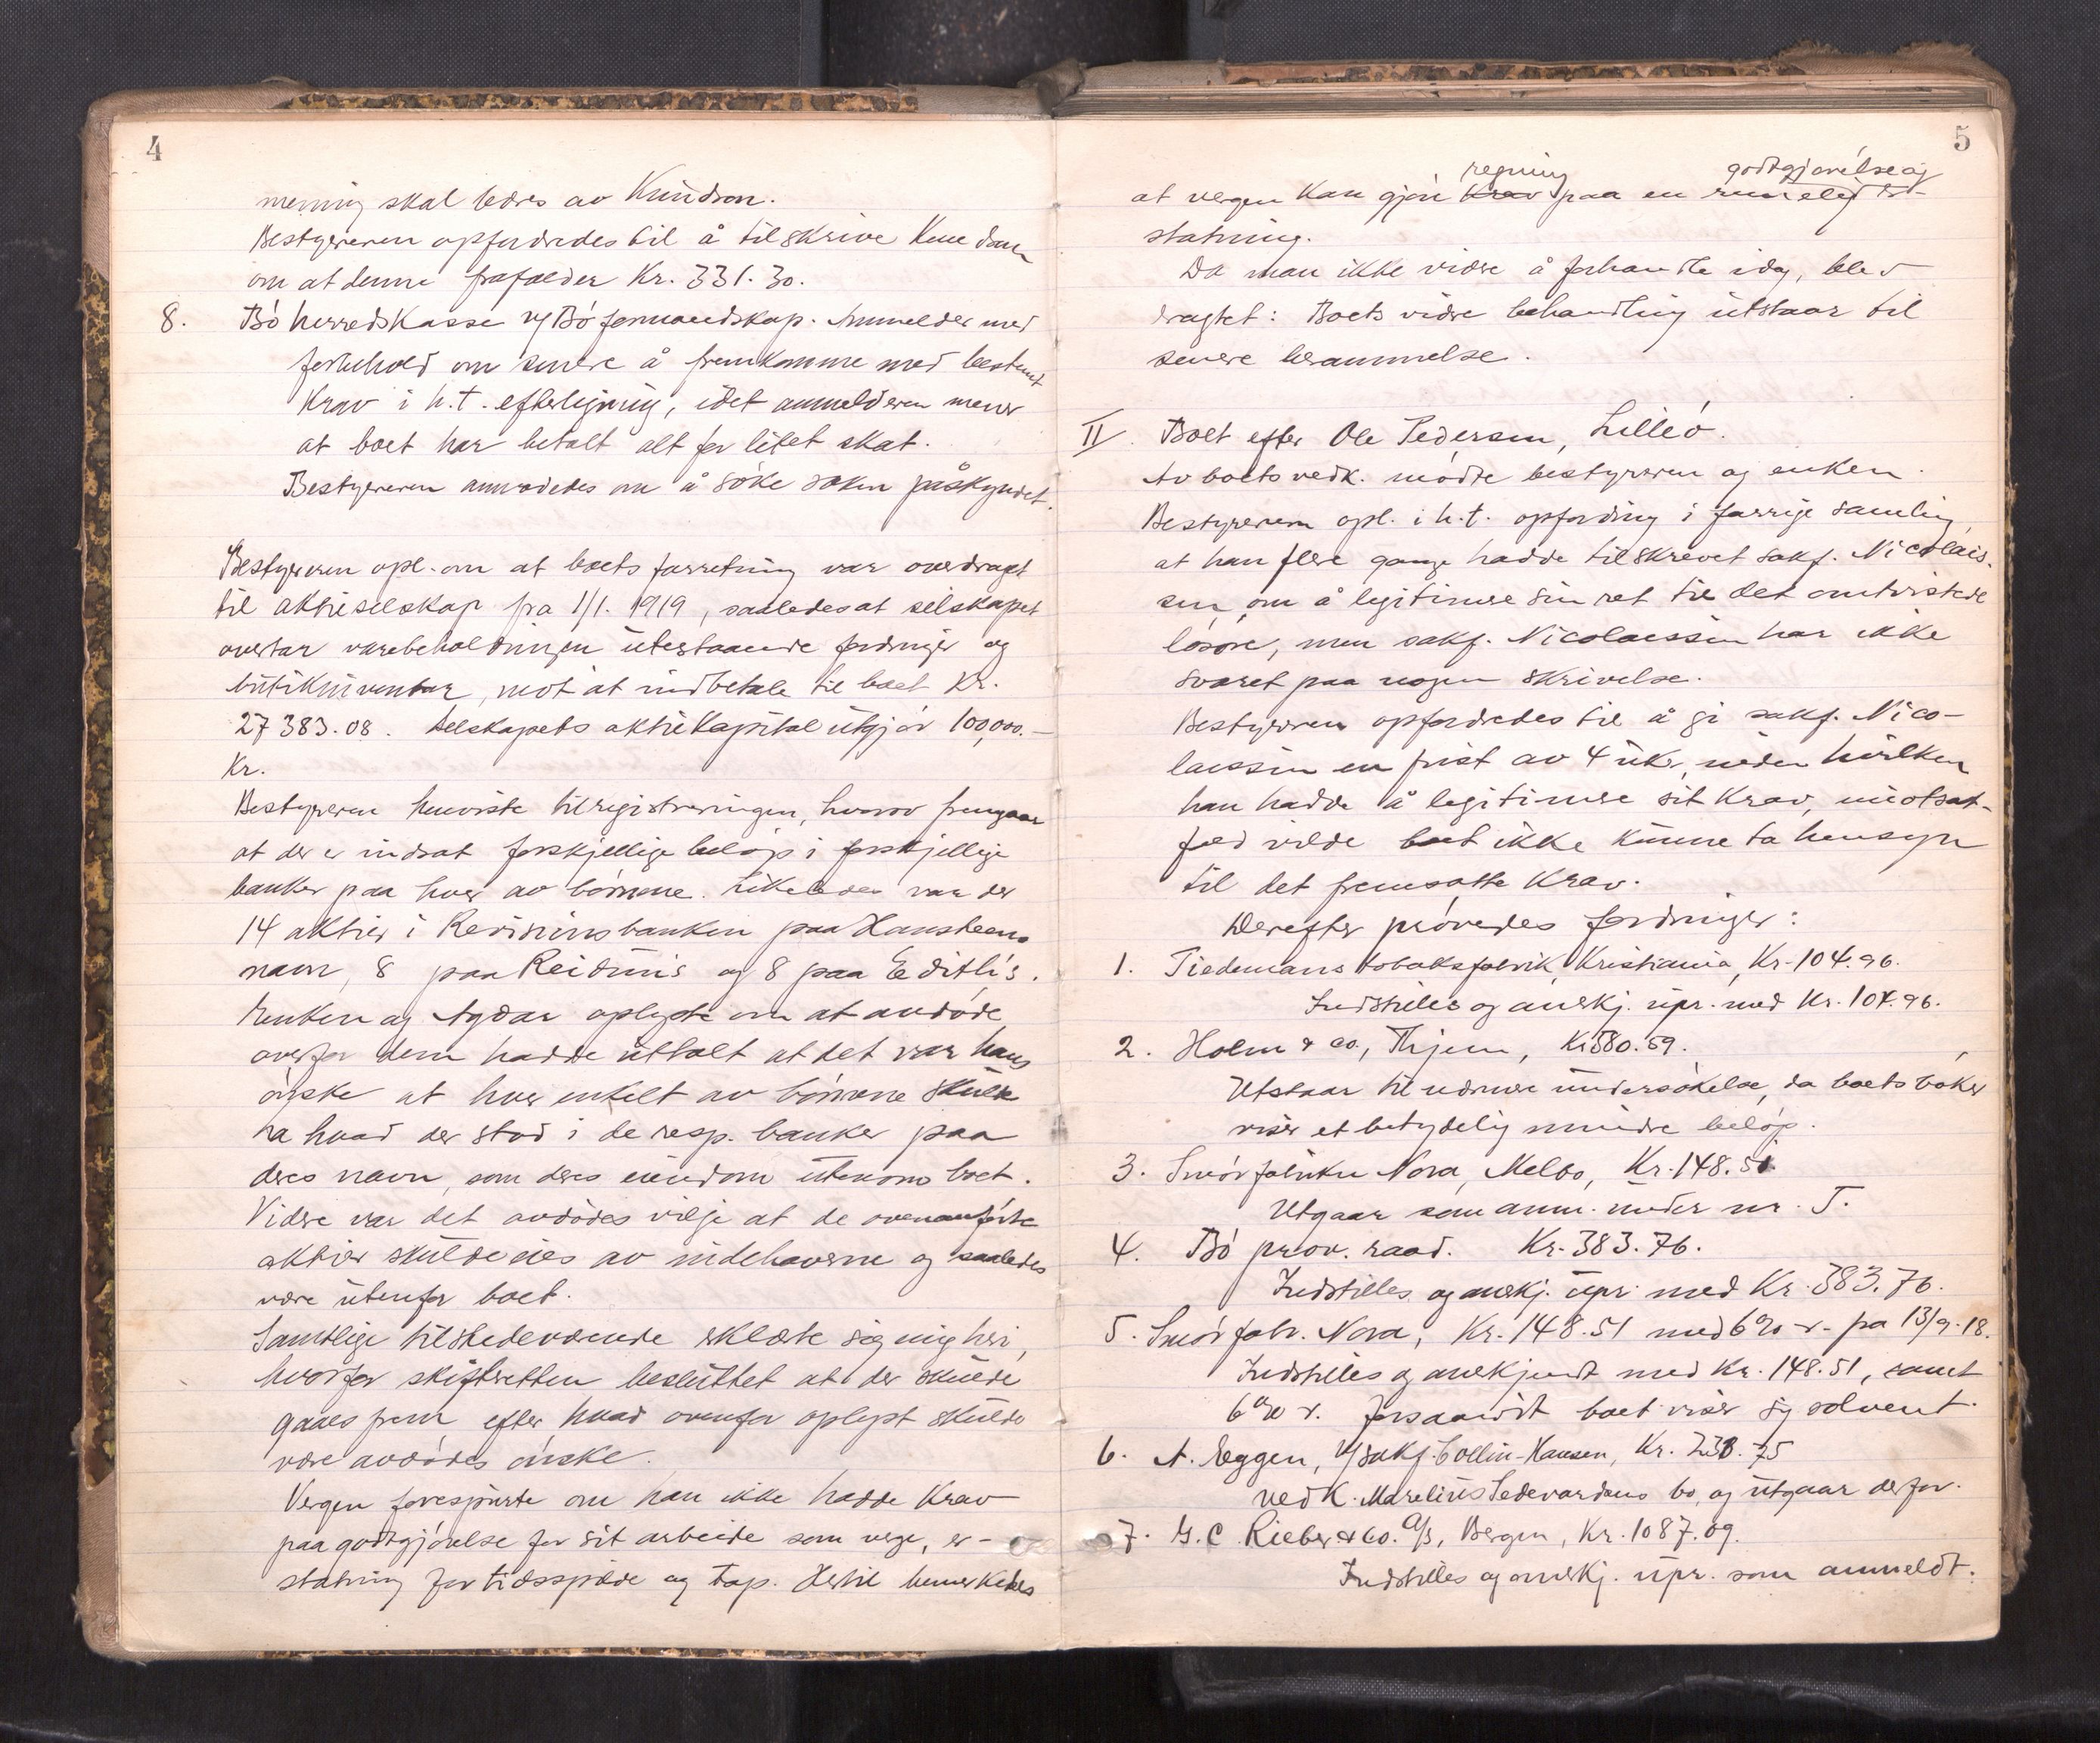 4
mening skal bæres av Knudson.
Bestyreren opfordredes til å tilskrive Knudsen
om at denne frafalder Kr. 331.30.
8. Bö herredskasse v/ Bö formandskap. Anmelder med
forbehold om senere å fremkomme med bestemt
krav i h.t. efterligning, idet anmelderen mener
at boet har betalt alt for litet skat.
Bestyreren anmodedes om å söke saken påskyndet.
Bestyreren opl. om at boets forretning var overdraget
til aktieselskap fra 1/1. 1919, saaledes at selskapet
overtar varebeholdningen utestaaende fordringer og
butikinventar, mot at indbetale til boet Kr.
27383.08. Selskapets aktiekapital utgjör 100,000.-
Kr.
Bestyreren henviste til registreringen, hvorav fremgaar
at der er indsat forskjellige belöp i forskjellige
banker paa hver av börnene. Likeledes var der
14 aktier i Revisionsbanken paa Hansteens
navn, 8 paa Reiduns og 8 paa Edith's.
Enken og Agdar oplyste om at avdöde
overfor dem hadde uttalt at det var hans
önske at hver enkelt av börnene skulde
ha hvad der stod i de resp. banker paa
deres navn, som deres eiendom utenom boet.
Videre var det avdödes vilje at de ovenanförte
aktier skulde eies av indehaverne og saaledes
være utenfor boet.
Samtlige tilstedeværende erklærte sig enig heri,
hvorfor skifteretten besluttet at der skulde
gaaes frem efter hvad ovenfor oplyst skulde
være avdödes önske.
Vergen forespurte om han ikke hadde krav
paa godtgjörelse for sit arbeide som verge, er-
statning for tidsspilde og tap. Hertil bemerkedes
5
regning godtgjörelse og
at vergen kan gjöre krav paa en rimelig er-
statning.
Da man ikke videre å forhandle idag, blev
dragtet: Boets vidre behandling utstaar til
senere berammelse.
II. Boet efter Ole Pedersen, Lilleö.
Av boets vedk. mödte bestyreren og enken.
Bestyreren opl. i h.t. opfordring i forrige samling,
at han flere gange hadde tilskrevet sakf. Nicolais-
sen, om å legitimere sin ret til det omtvistede
lösöre, men sakf. Nicolaissen har ikke
svaret paa nogen skrivelse.
Bestyreren opfordredes til å gi sakf. Nico-
laissen en frist av 4 uker, inden hvilken
han hadde å legitimere sit krav, i motsat-
fald vilde boet ikke kunne ta hensyn
til det fremsatte krav.
Derefter prövedes fordringer:
1. Tiedemans tobaksfabrik, Kristiania, Kr. 104.96.
Indstilles og anerkj. upr. med Kr. 104.96.
2. Holm & Co., Thjem, Kr. 580.59.
Utstaar til nærmere undersökelse, da boets böker
viser et betydelig mindre belöp.
3. Smörfabriken Nora, Melbo, Kr. 148.51.
Utgaar som anm. under nr. 5.
4. Bö prov. raad. Kr. 383.76.
Indstilles og anerkj. upr. med Kr. 383.76.
5. Smörfabr. Nora, Kr. 148.51 med 6% r. fra 13/9.18.
Indstilles og anerkjendt med Kr. 148.51, samt
6% r. forsaavidt boet viser sig solvent.
6. A. Eggen, v/ sakf. Collin-Hansen, Kr. 238.75
vedk. Marelius Pedersens bo, og utgaar derfor.
7. G.C. Rieber & Co. A/S, Bergen, Kr. 1087.09.
Indstilles og anerkj. upr. som anmeldt.